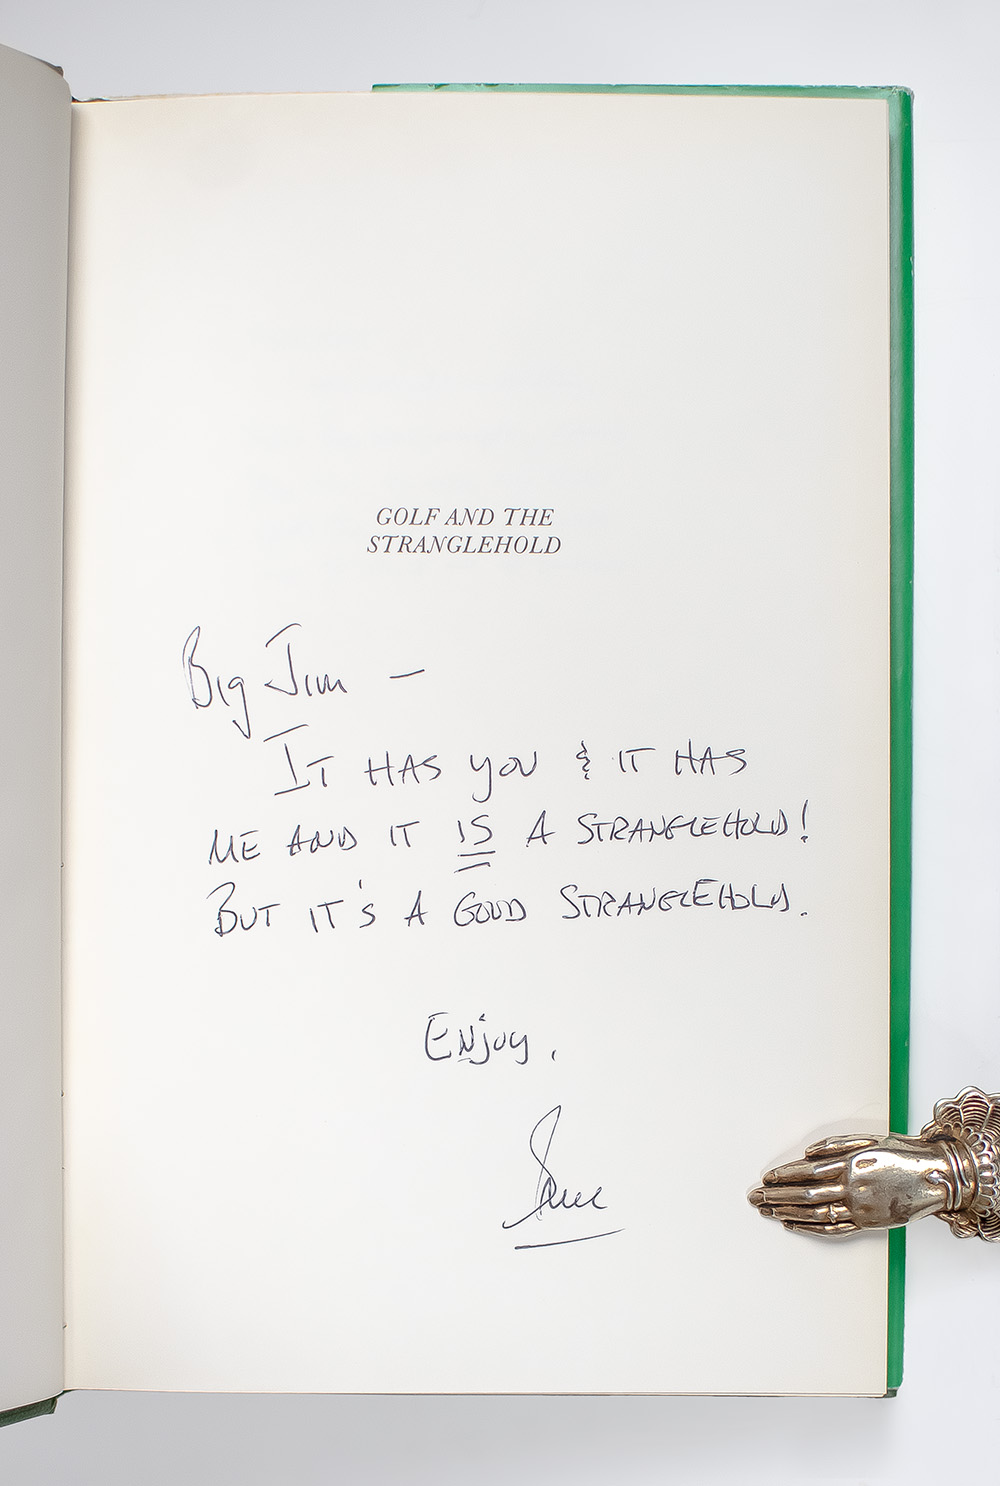 GOLF AND THE
STRANGLEHOLD
Big Jim —
IT HAS YOU & IT HAS
ME AND IT IS A STRANGLEHOLD!
BUT IT'S A GOOD STRANGLEHOLD.
ENJOY.